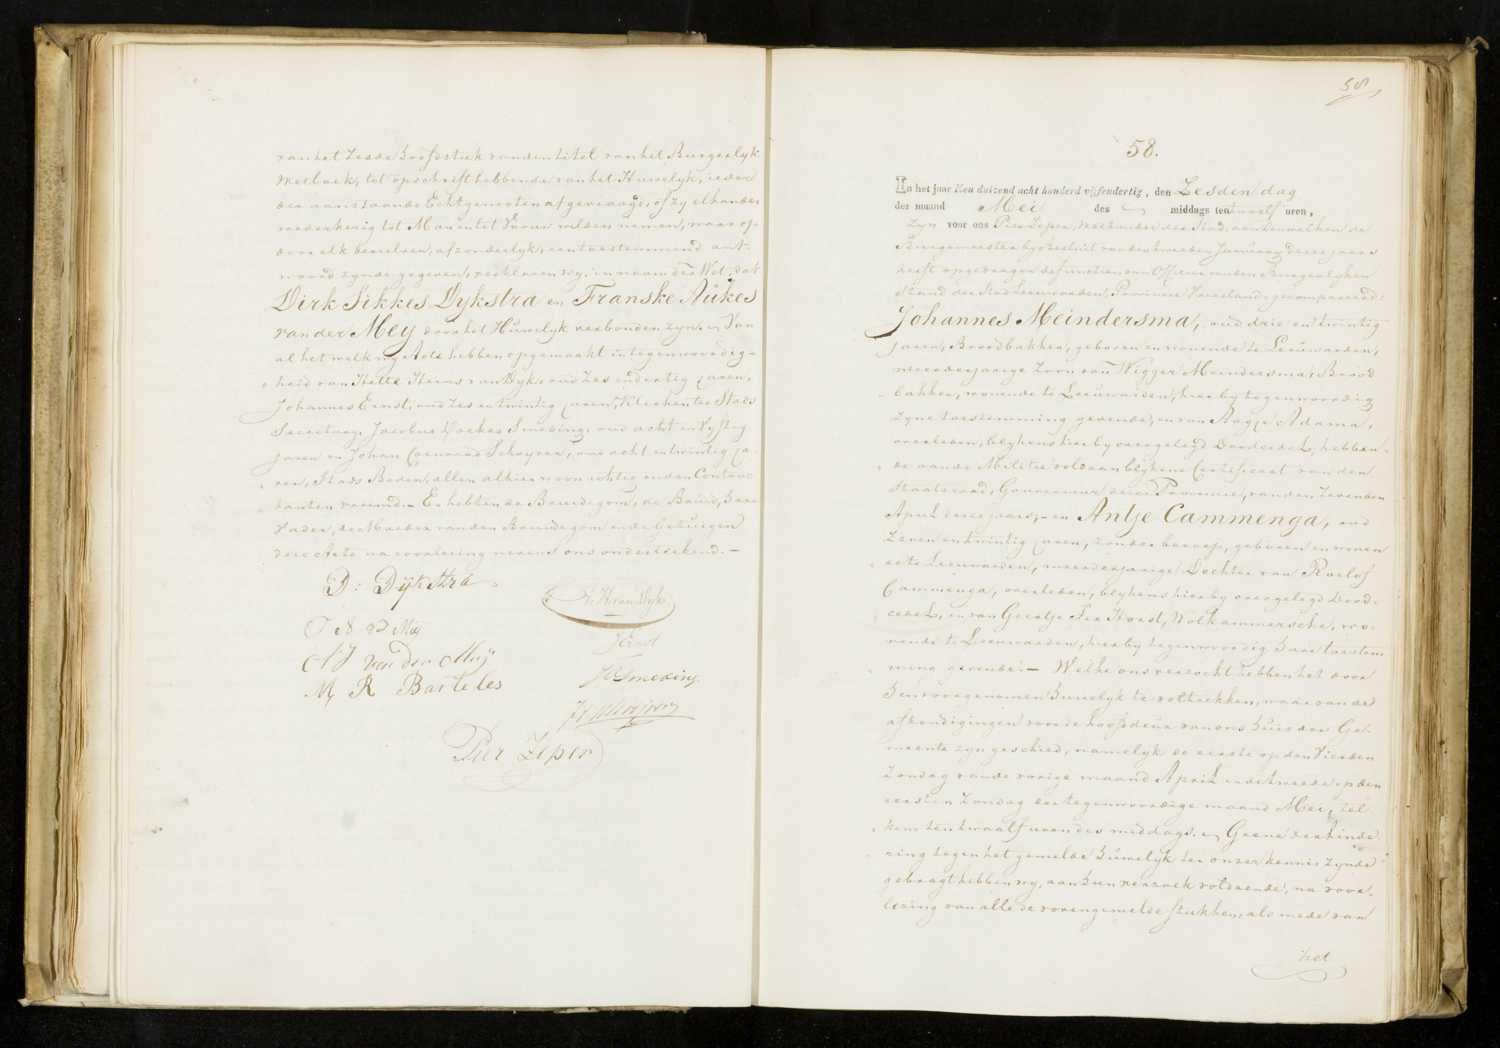 van het Zesde Hoofdstuk van den titel van het Burgerlyk
Wetboek, tot opschrift hebbende van het Huwelyk, ieder
der aanstaande Echtgenooten afgevraagd, of zy elkander
wederkeerig tot Man en tot Vrouw wilden nemen, waarop
door elk derzelven, afzonderlyk, een toestemmend ant-
woord zynde gegeven, verklaren wy, in naam der Wet, dat
Dirk Sikkes Dykstra en Franske Aukes
van der Mey door het Huwelyk verbonden zyn. – Van
al het welk wy Acte hebben opgemaakt in tegenwoordig-
heid van Hette Harms van Dyk, oud Zes en dertig jaren,
Johannes Ernst, oud Zes en twintig jaren, Klerken ter Stads
Secretary, Jacobus Smeding, oud acht en Vyftig
jaren en Johan Coenraad Schryver, oud acht en twintig ja-
ren, Stads Boden, allen alhier woonachtig en den Contrac-
tanten vreemd. – En hebben de Bruidegom, de Bruid, haar
Vader, de Moeder van den Bruidegom en de Getuigen
deze Acte na voorlezing nevens ons onderteekend. –
D: Dijkstra
F A vd Meij
A J van der Meij
M R Barteles
H H van Dyk
J Ernst
J Smeding
J C Schrijver
Pier Zeper
58
58.
In het jaar Een duizend acht honderd vijfendertig, den Zesden dag
der maand Mei des middags ten twaalf uren,
Zyn voor ons Pier Zeper, Wethouder der Stad, aan den welken de
Burgemeester by besluit van den tweeden January dezes jaars
heeft opgedragen de functien van Officier van den Burgerlyken
Stand der Stad Leeuwarden, Provincie Vriesland, gecompareerd:
Johannes Meindersma, oud drie en twintig
jaren, Broodbakker, geboren en wonende te Leeuwarden,
meerderjarige Zoon van Wigger Meindersma, Brood
bakker, wonende te Leeuwarden, hierby tegenwoordig,
zyne toestemming gevende, en van Aagje Adama,
overleden, blykens hierby overgelegd Doodcedel, hebben-
de aan de Militie voldaan blykens Certificaat van den
Staatsraad, Gouverneur dezer Provincie, van den Zevenden
April dezes jaars, – en Antje Cammenga, oud
Zeven en twintig jaren, zonder beroep, geboren en wonen
de te Leeuwarden, meerderjarige Dochter van Roelof
Cammenga, overleden, blykens hierby overgelegd Dood-
cedel, en van Geertje Ter Horst, Wolkammersche, wo-
nende te Leeuwarden, hierby tegenwoordig haar toestem
ming gevende. – Welke ons verzocht hebben het door
hen voorgenomen huwelyk te voltrekken, waarvan de
afkondigingen voor de hoofddeur van ons Huis der Ge-
meente zyn geschied, namelyk de eerste op den Vierden
Zondag van de vorige maand April en de tweede op den
eersten Zondag der tegenwoordige maand Mei, tel-
kens ten twaalf uren des middags. – Geene verhinde-
ring tegen het gemelde huwelyk ter onzer kennis zynde
gebragt hebben wy, aan hun verzoek voldoende, na voor-
lezing van alle de vorengemelde stukken, als mede van
het